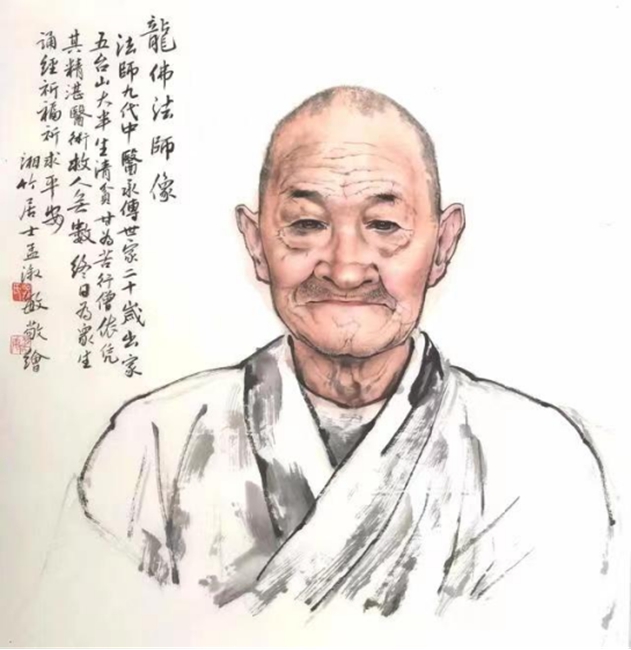 龍佛法師像
法師九代中醫永傳世家二十歲出家
五台山大半生清貧甘為苦行僧依凭
其精湛醫術救人無數終日為眾生
誦經祈福祈求平安
湘竹居士孟淑敏敬繪